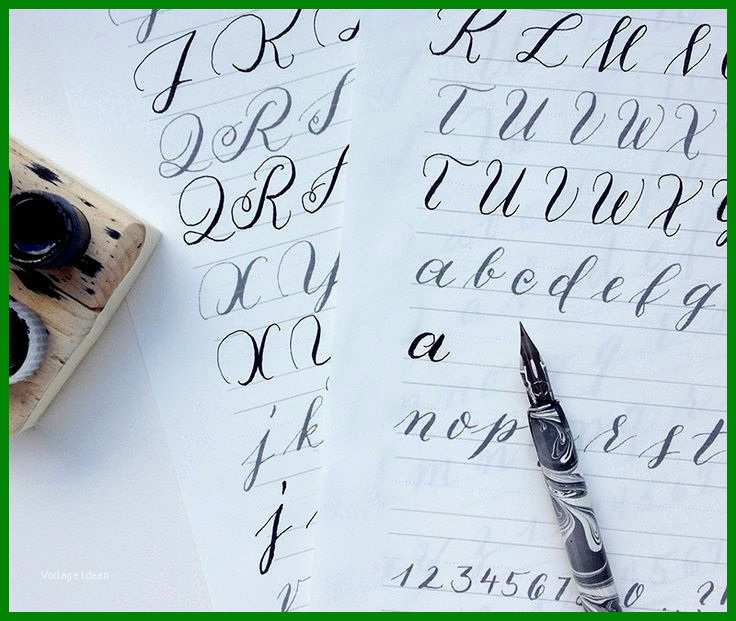 J K
Q R S
Q R S
X Y
X
j k
j
v
K L M N
T U V W X
T U V W X Y
a b c d e f g
a
n o p r s t
1 2 3 4 5 6 7
Vorlageideen